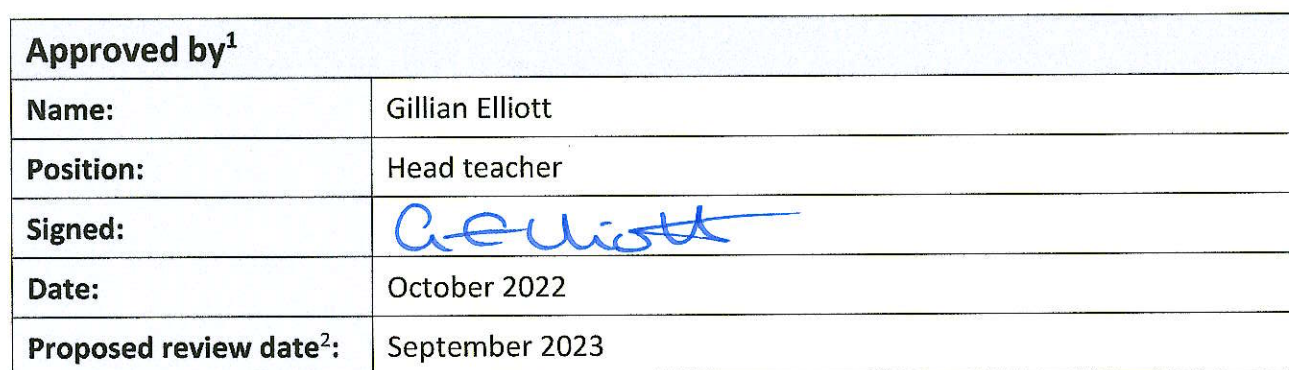 Approved by¹
Name: Gillian Elliott
Position: Head teacher
Signed: G Elliott
Date: October 2022
Proposed review date²: September 2023